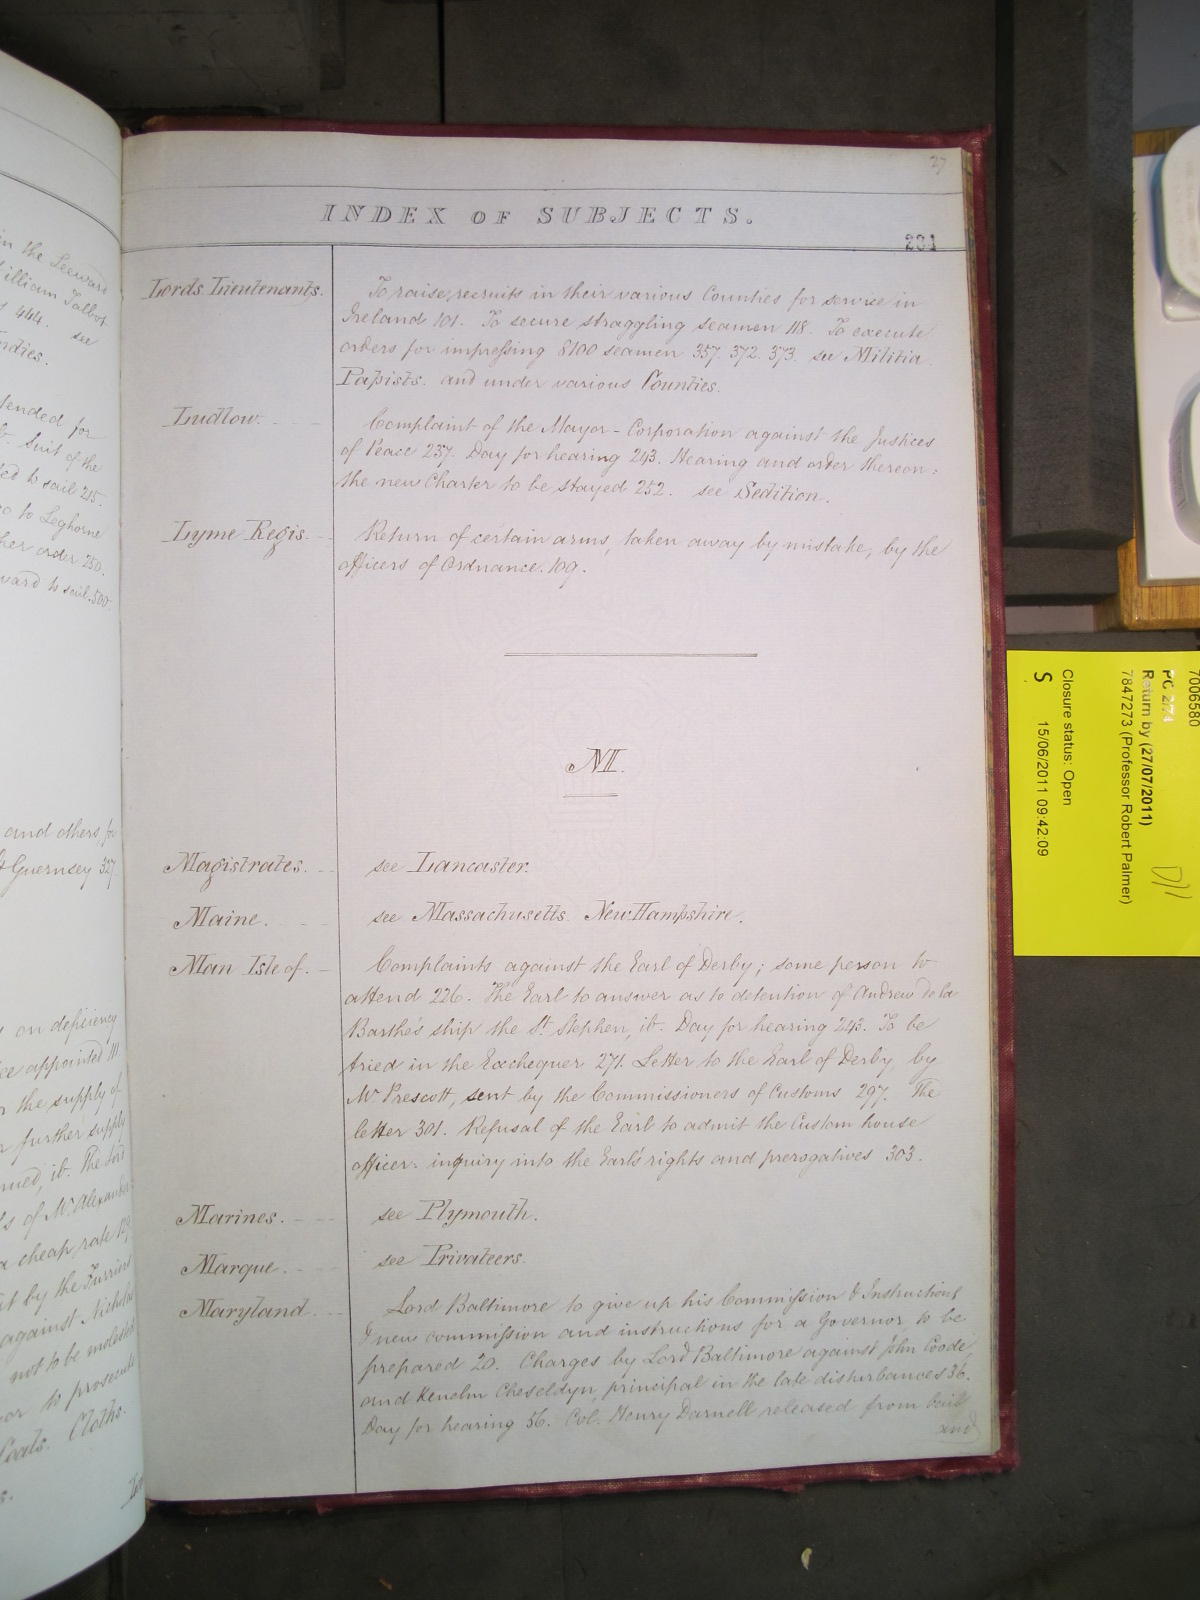 in the Leeward
William Talbot
444. see
Indies.
tended for
Suit of the
to sail 215.
to Leghorne
her order 250.
ward to sail. 500.
and others, for
Guernsey 327.
on deficiency
appointed 111.
the supply of
further supply
ib. The Lord
of Mr Alexander
a cheap rate 129.
by the Furriers
against Nicholas
not to be molested
or to prosecute
Coats. Cloths.
27
INDEX OF SUBJECTS.
231
Lords Lieutenants. To raise recruits in their various Counties for service in
Ireland 101. To secure straggling seamen 118. To execute
orders for impressing 8100 seamen 357. 372. 373. see Militia.
Papists. and under various Counties.
Ludlow. Complaint of the Mayor - Corporation against the Justices
of Peace 237. Day for hearing 243. Hearing and order thereon:
the new Charter to be stayed 252. see Sedition.
Lyme Regis. Return of certain arms, taken away by mistake, by the
officers of Ordnance. 109.
M.
Magistrates. see Lancaster.
Maine. see Massachusetts. New Hampshire.
Man Isle of. Complaints against the Earl of Derby; some person to
attend 226. The Earl to answer as to detention of Andrew De la
Barthe's ship the St. Stephen, ib. Day for hearing 243. To be
tried in the Exchequer 271. Letter to the Earl of Derby, by
Mr Prescott, sent by the Commissioners of Customs 297. The
letter 301. Refusal of the Earl to admit the Custom house
officer: inquiry into the Earl's rights and prerogatives 303.
Marines. see Plymouth.
Marque. see Privateers.
Maryland. Lord Baltimore to give up his Commission & Instructions
& new commission and instructions for a Governor to be
prepared 20. Charges by Lord Baltimore against John Coode,
and Kenelm Cheseldyn, principal in the late disturbances 36.
Day for hearing 56. Col. Henry Darnell released from bail
and
7006580
PC 2/74
Return by (27/07/2011)
7847273 (Professor Robert Palmer)
Closure status: Open
S 15/06/2011 09:42:09